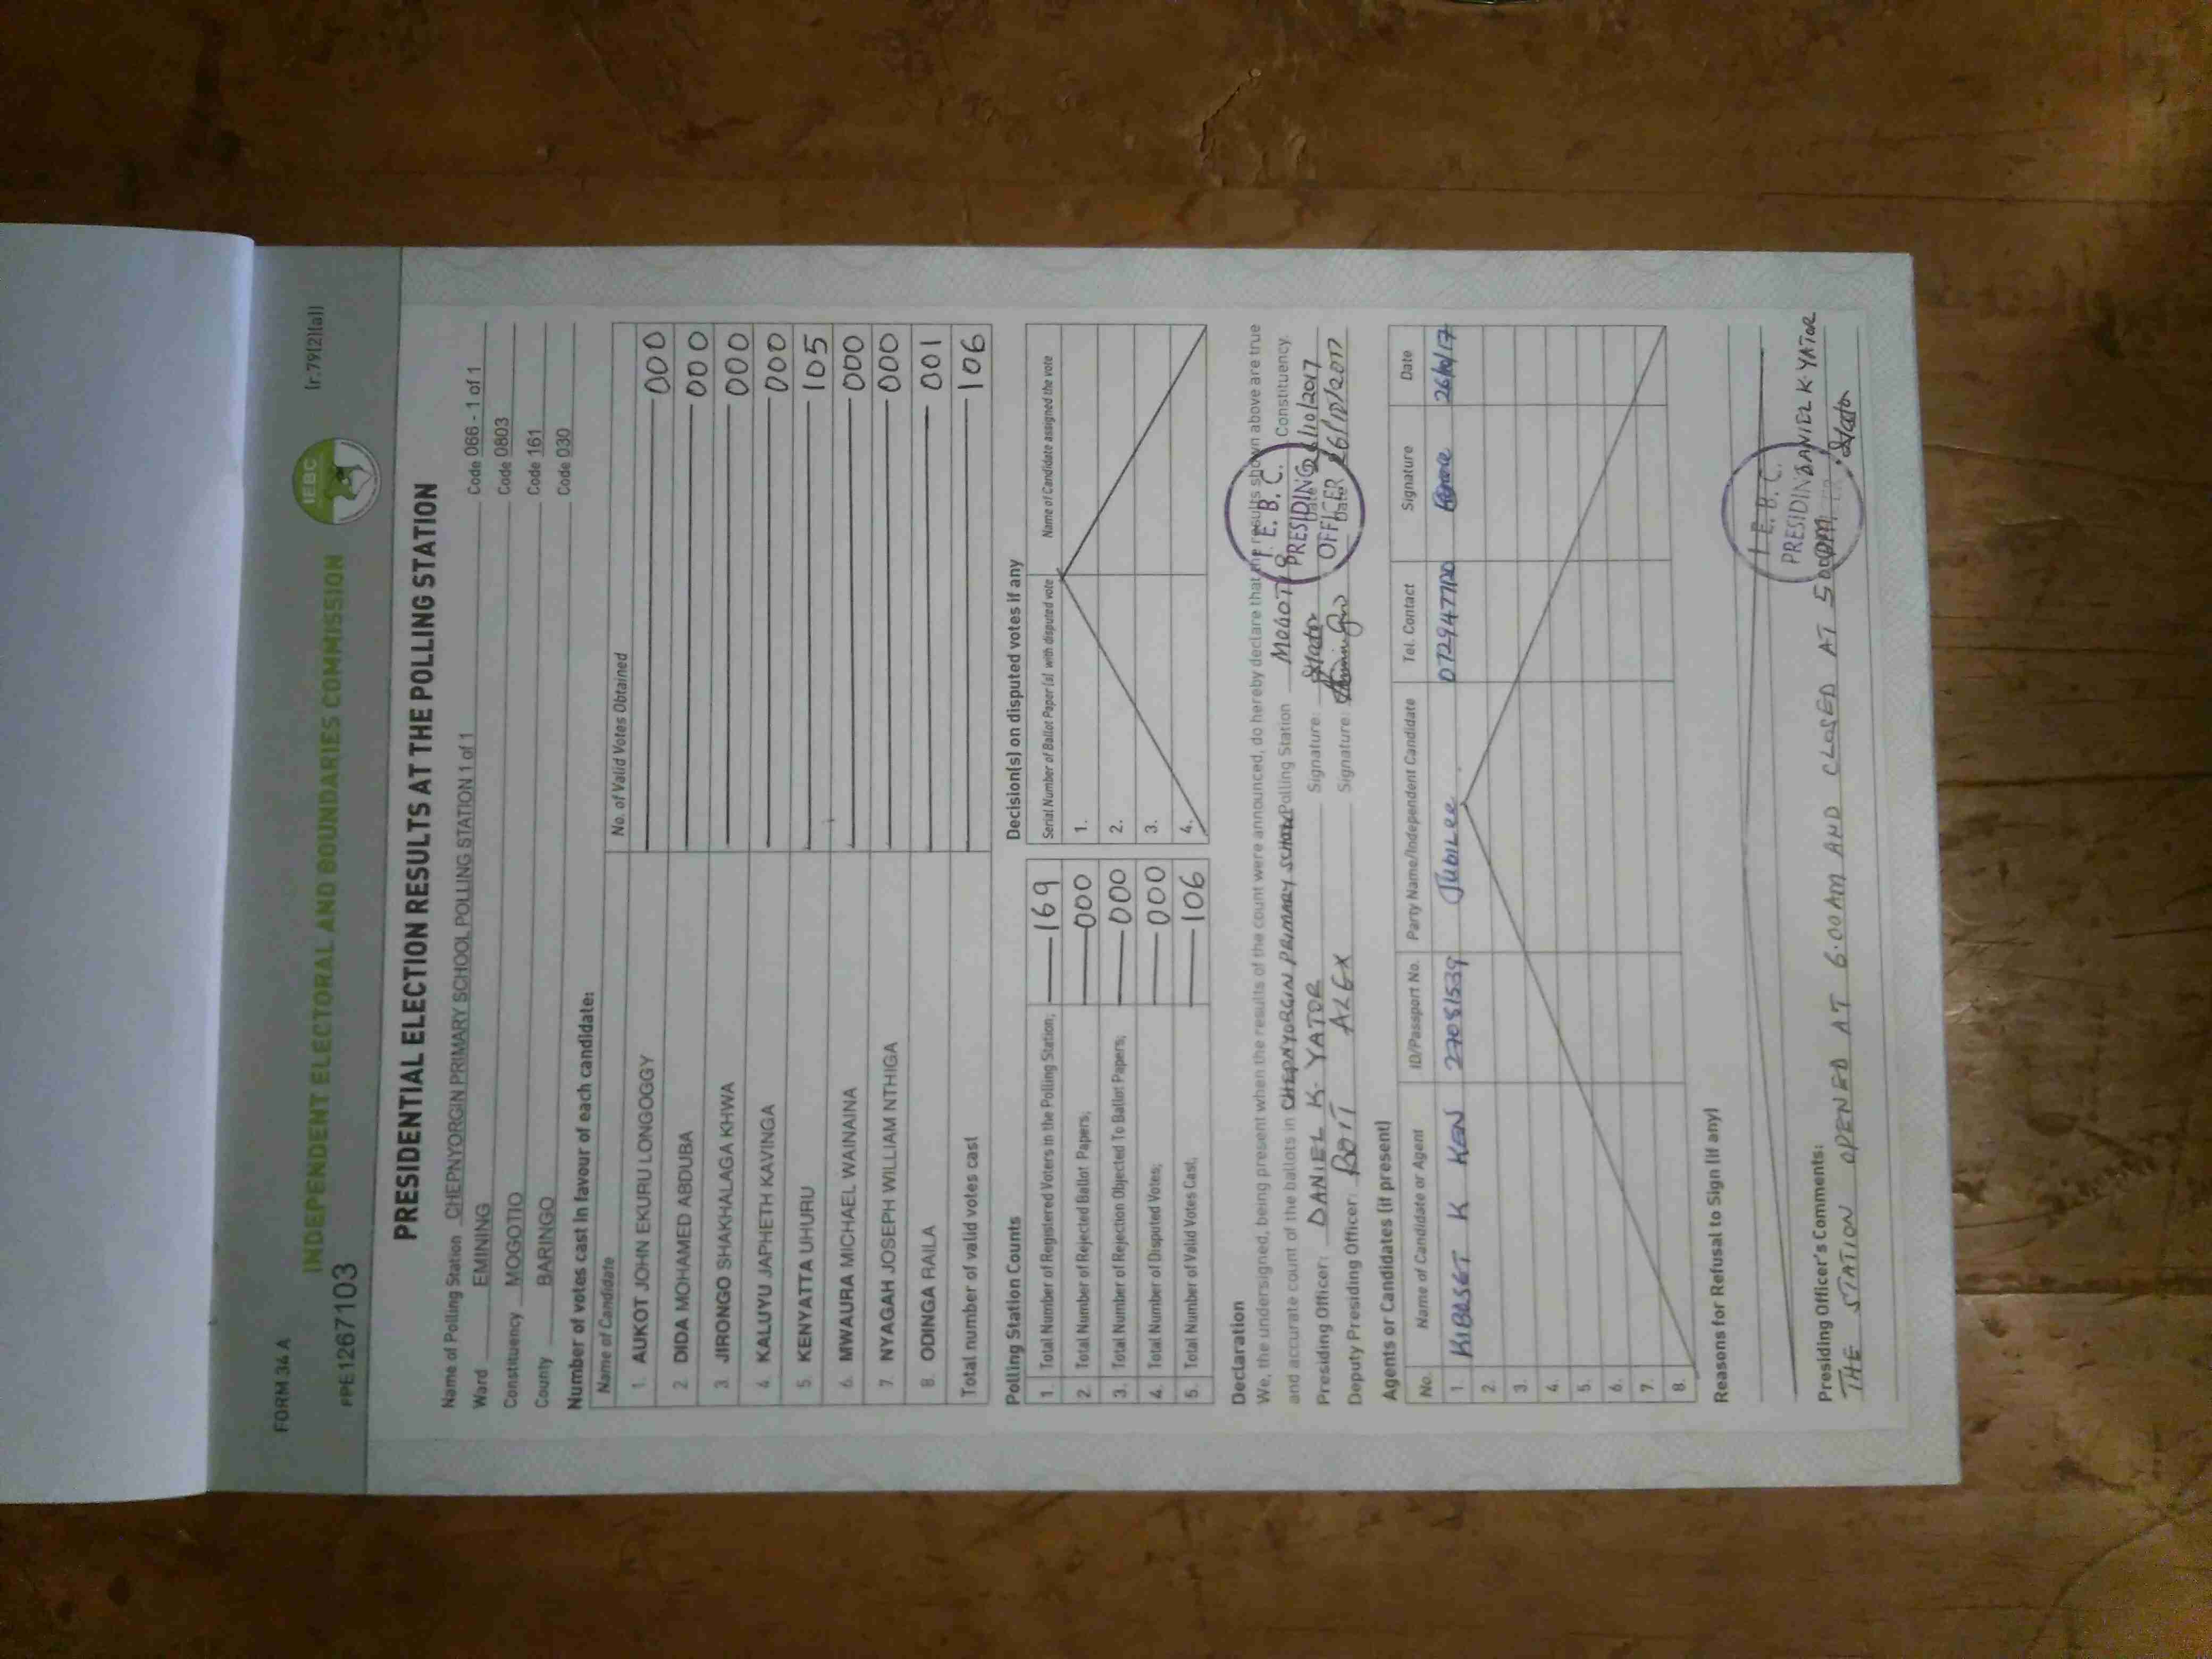 FORM 34 A
(r.79(2)(a))
IEBC
INDEPENDENT ELECTORAL AND BOUNDARIES COMMISSION
PPE1267103
PRESIDENTIAL ELECTION RESULTS AT THE POLLING STATION
Name of Polling Station CHEPNYORGIN PRIMARY SCHOOL POLLING STATION 1 of 1 Code 066 - 1 of 1
Ward EMINING Code 0803
Constituency MOGOTIO Code 161
County BARINGO Code 030
Number of votes cast in favour of each candidate:
Name of Candidate No. of Valid Votes Obtained
1. AUKOT JOHN EKURU LONGOGGY 000
2. DIDA MOHAMED ABDUBA 000
3. JIRONGO SHAKHALAGA KHWA 000
4. KALUYU JAPHETH KAVINGA 000
5. KENYATTA UHURU 105
6. MWAURA MICHAEL WAINAINA 000
7. NYAGAH JOSEPH WILLIAM NTHIGA 000
8. ODINGA RAILA 001
Total number of valid votes cast 106
Polling Station Counts
1. Total Number of Registered Voters in the Polling Station; 169
2. Total Number of Rejected Ballot Papers; 000
3. Total Number of Rejection Objected To Ballot Papers; 000
4. Total Number of Disputed Votes; 000
5. Total Number of Valid Votes Cast; 106
Decision(s) on disputed votes if any
Serial Number of Ballot Paper(s) with disputed vote Name of Candidate assigned the vote
1.
2.
3.
4.
Declaration
We, the undersigned, being present when the results of the count were announced, do hereby declare that the results shown above are true
and accurate count of the ballots in CHEPNYORGIN PRIMARY SCHOOL Polling Station MOGOTIO Constituency.
Presiding Officer: DANIEL K. YATOR Signature: Date 26/10/2017
Deputy Presiding Officer: BOIT ALEX Signature: Date 26/10/2017
I. E. B. C.
PRESIDING
OFFICER
Agents or Candidates (if present)
No. Name of Candidate or Agent ID/Passport No. Party Name/Independent Candidate Tel. Contact Signature Date
1. KIBASET K KEN 27081539 JUBILEE 26/10/17
2.
3.
4.
5.
6.
7.
8.
Reasons for Refusal to Sign (if any)
I. E. B. C.
PRESIDING
Presiding Officer's Comments:
DANIEL K. YATOR
THE STATION OPENED AT 6.00AM AND CLOSED AT 5.00PM